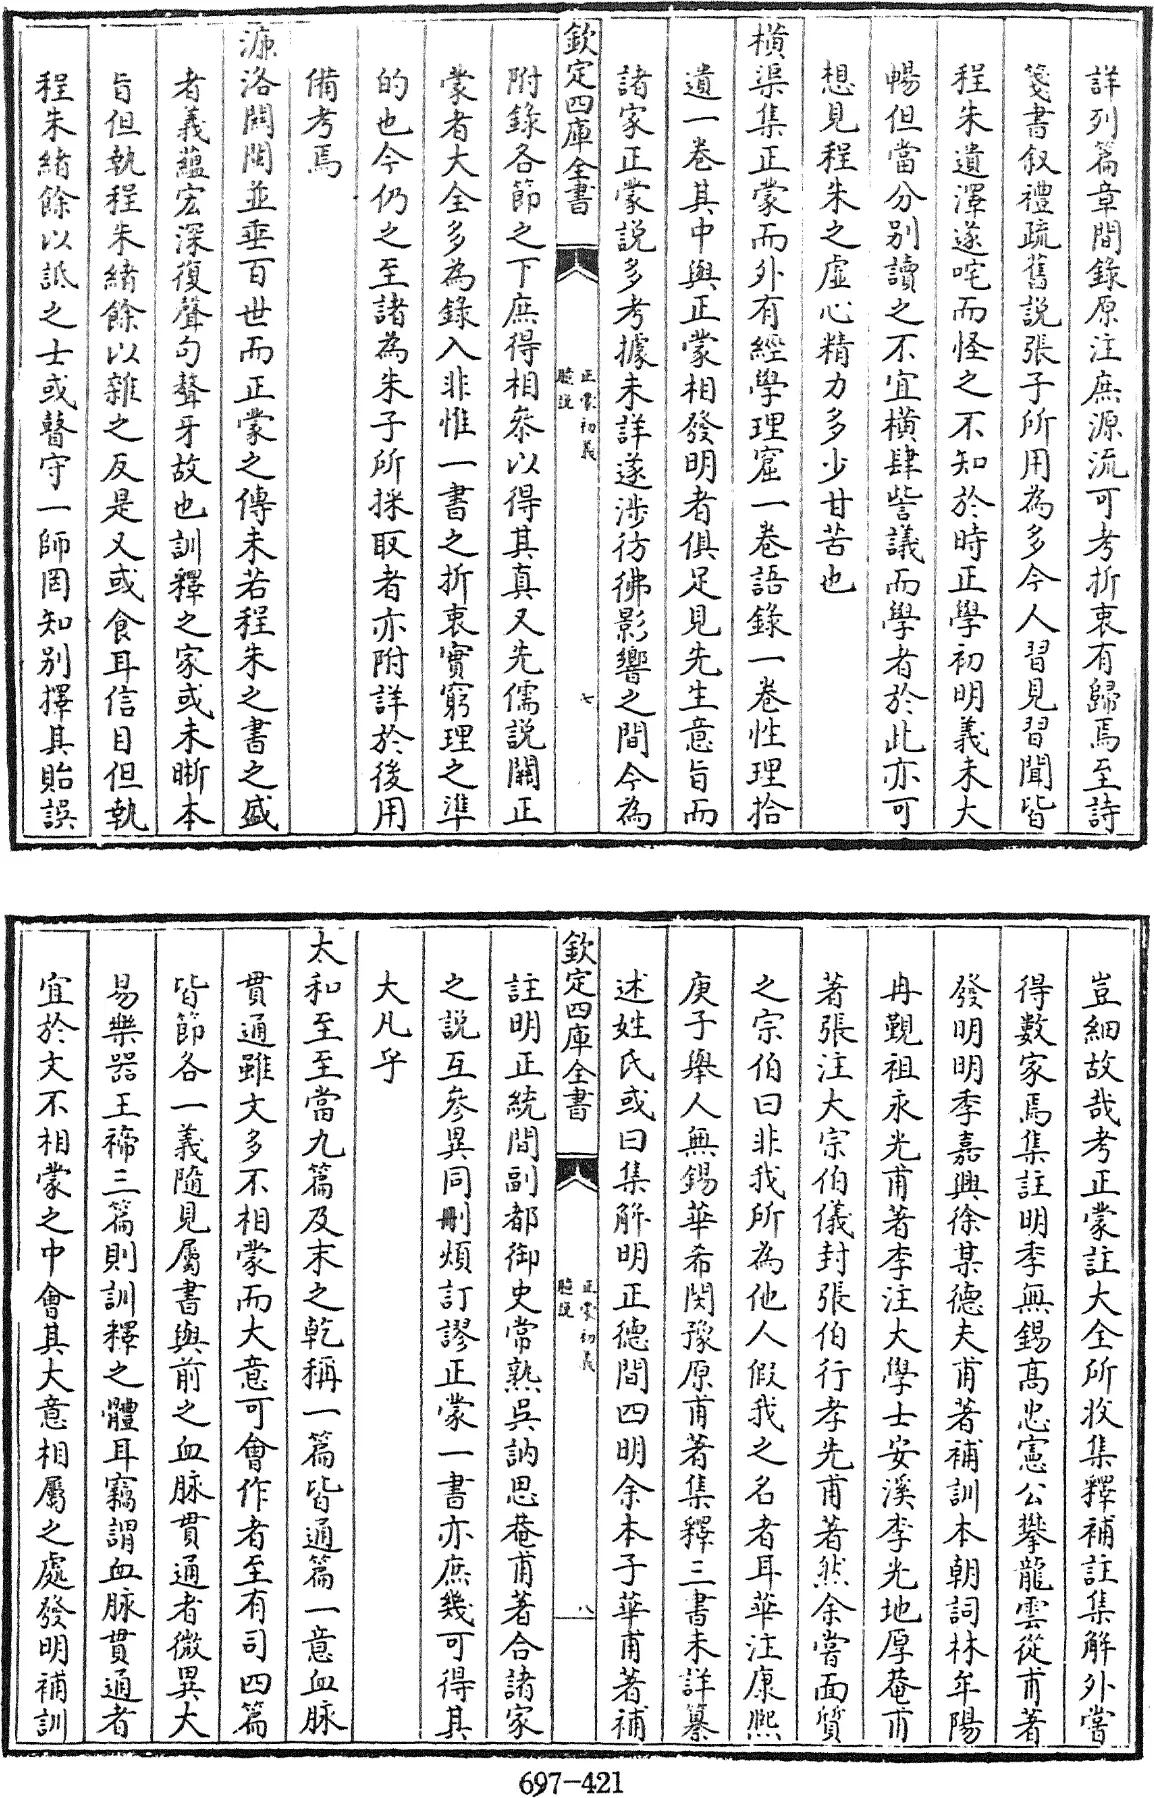 詳列篇章間錄原注庶源流可考折衷有歸焉至詩
箋書叙禮疏舊説張子所用為多今人習見習聞皆
程朱遺澤遂咤而怪之不知於時正學初明義未大
暢但當分别讀之不宜横肆訾議而學者於此亦可
想見程朱之虛心精力多少甘苦也
横渠集正蒙而外有經學理窟一卷語錄一卷性理拾
遺一卷其中與正蒙相發明者俱足見先生意旨而
諸家正蒙説多考據未詳遂涉彷彿影響之間今為
欽定四庫全書
正蒙初義
臆説
七
附錄各節之下庶得相叅以得其真又先儒説闢正
蒙者大全多為錄入非惟一書之折衷實窮理之準
的也今仍之至諸為朱子所採取者亦附詳於後用
備考焉
濂洛關閩並垂百世而正蒙之傳未若程朱之書之盛
者義蘊宏深復聲句聱牙故也訓釋之家或未晰本
旨但執程朱緒餘以雜之反是又或食耳信目但執
程朱緒餘以詆之士或瞽守一師罔知别擇其貽誤
豈細故哉考正蒙註大全所收集釋補註集解外嘗
得數家焉集註明季無錫高忠憲公攀龍雲從甫著
發明明季嘉興徐某德夫甫著補訓本朝詞林牟陽
冉覲祖永光甫著李注大學士安溪李光地厚菴甫
著張注大宗伯儀封張伯行孝先甫著然余嘗面質
之宗伯曰非我所為他人假我之名者耳華注康熙
庚子舉人無錫華希閔豫原甫著集釋三書未詳纂
述姓氏或曰集解明正德間四明余本子華甫著補
欽定四庫全書
正蒙初義
臆説
八
註明正統間副都御史常熟吳訥思菴甫著合諸家
之説互參異同刪煩訂謬正蒙一書亦庶幾可得其
大凡乎
太和至至當九篇及末之乾稱一篇皆通篇一意血脉
貫通雖文多不相蒙而大意可會作者至有司四篇
皆節各一義隨見屬書與前之血脉貫通者微異大
易樂器王禘三篇則訓釋之體耳竊謂血脉貫通者
宜於文不相蒙之中會其大意相屬之處發明補訓
697-421